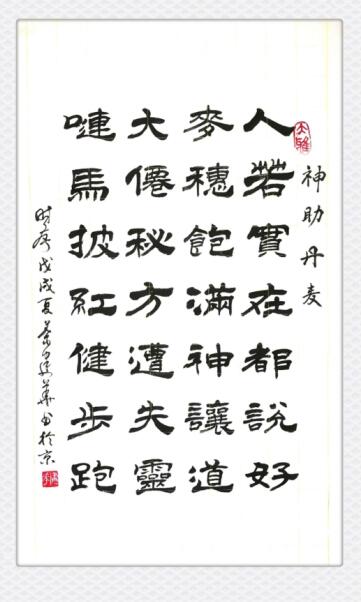 大雅
神助丹麦
人若實在都說好
麥穗飽滿神讓道
大僊秘方遭失靈
嗹馬披紅健步跑
时序戊戌夏华书於京